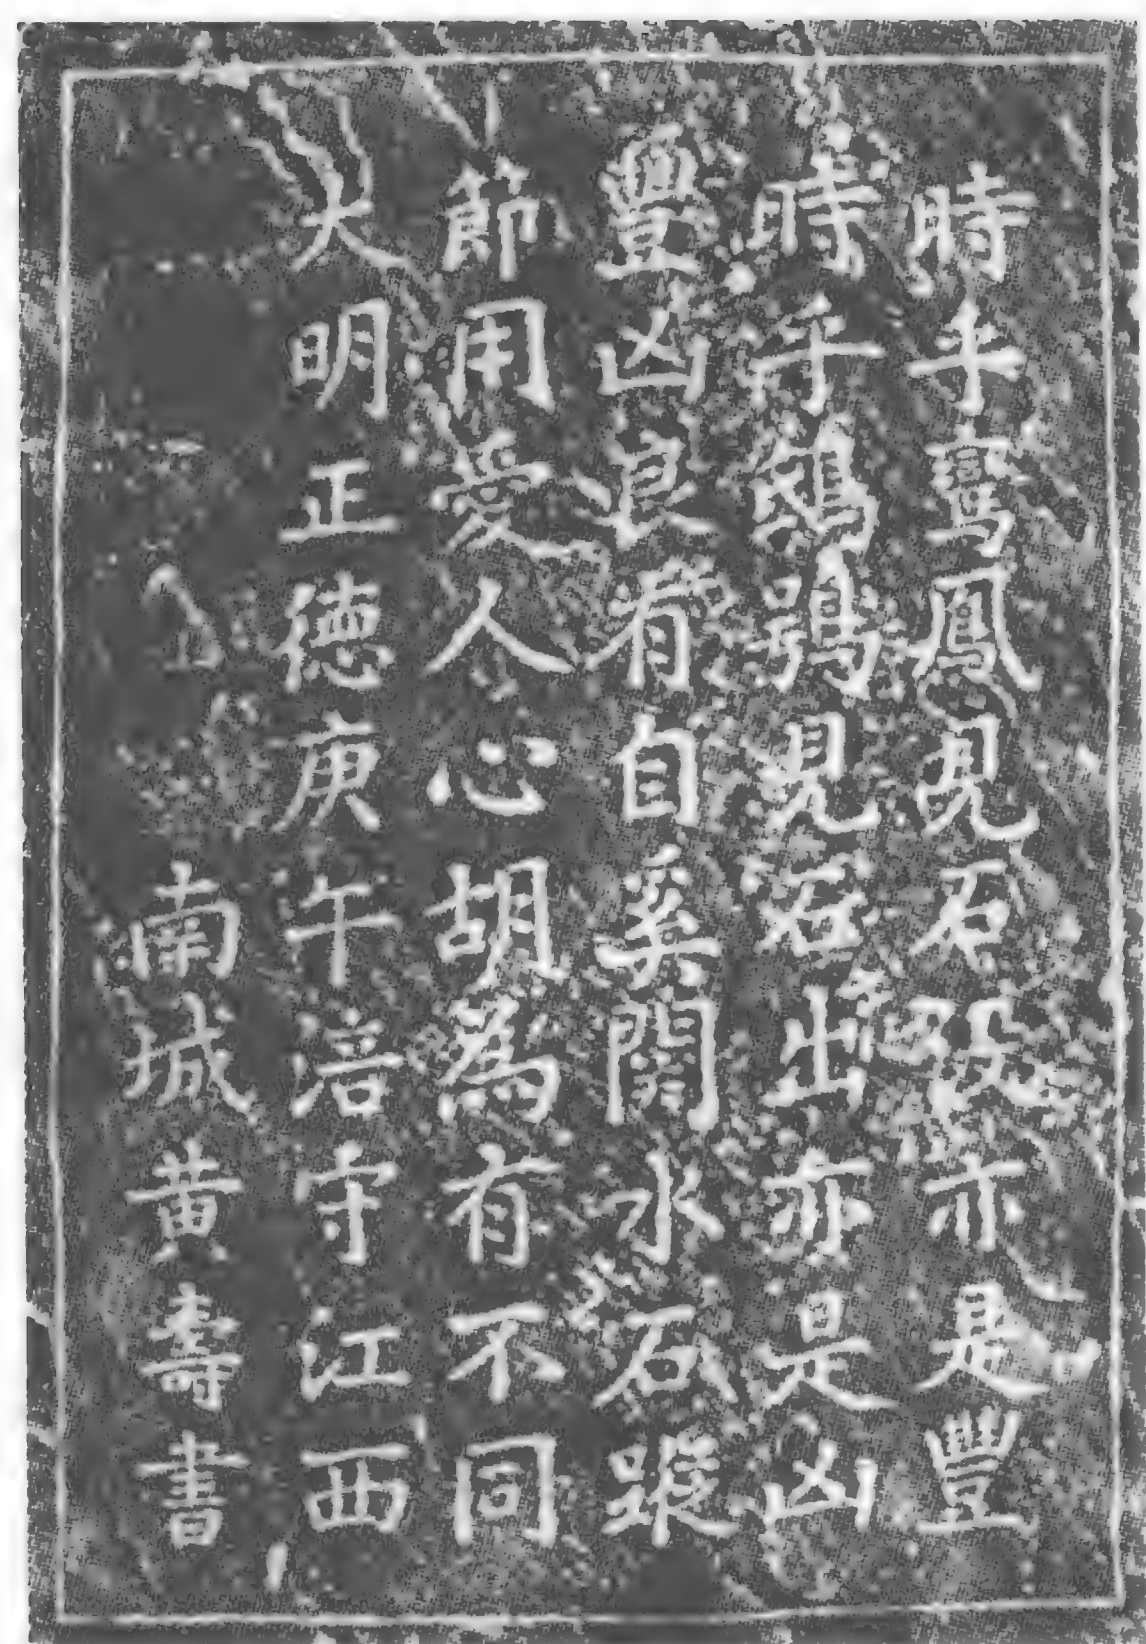 時平鸞鳳見石沒亦是豐
時乎鴟鴞見石出亦是凶
豐凶良有自奚関水石蹤
節用愛人心胡為有不同
大明正德庚午涪守江西
南城黃壽書